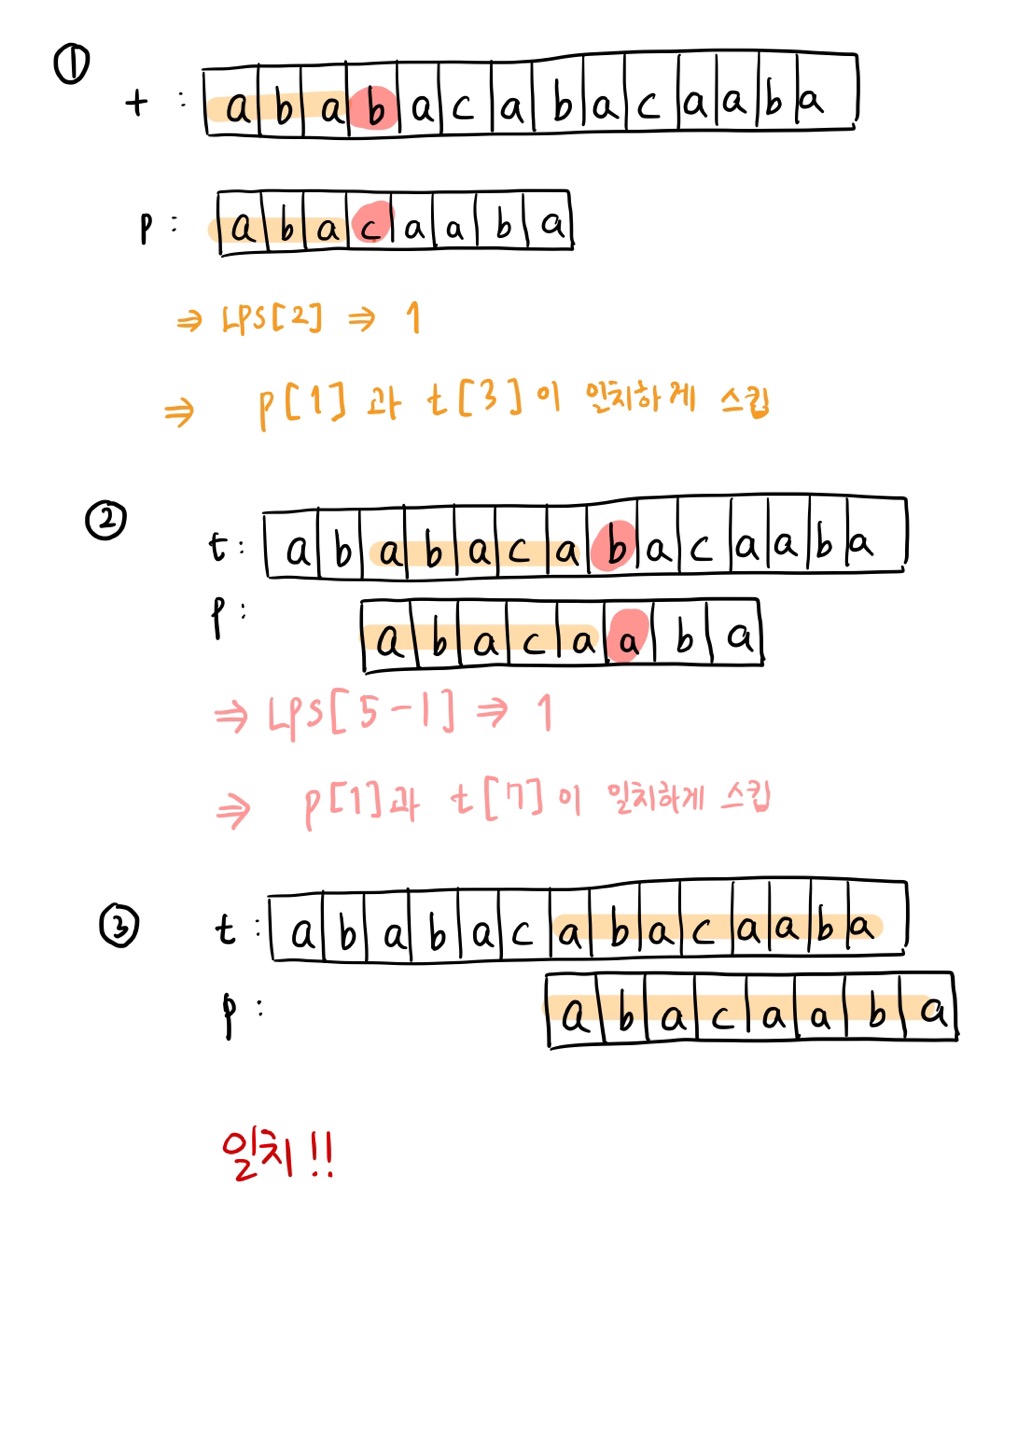 ①
t : a b a b a c a b a c a a b a
p : a b a c a a b a
⇒ LPS[2] ⇒ 1
⇒ p[1]과 t[3]이 일치하게 스킵
②
t: a b a b a c a b a c a a b a
p: a b a c a a b a
⇒ LPS[5-1] ⇒ 1
⇒ p[1]과 t[7]이 일치하게 스킵
③
t : a b a b a c a b a c a a b a
p : a b a c a a b a
일치!!